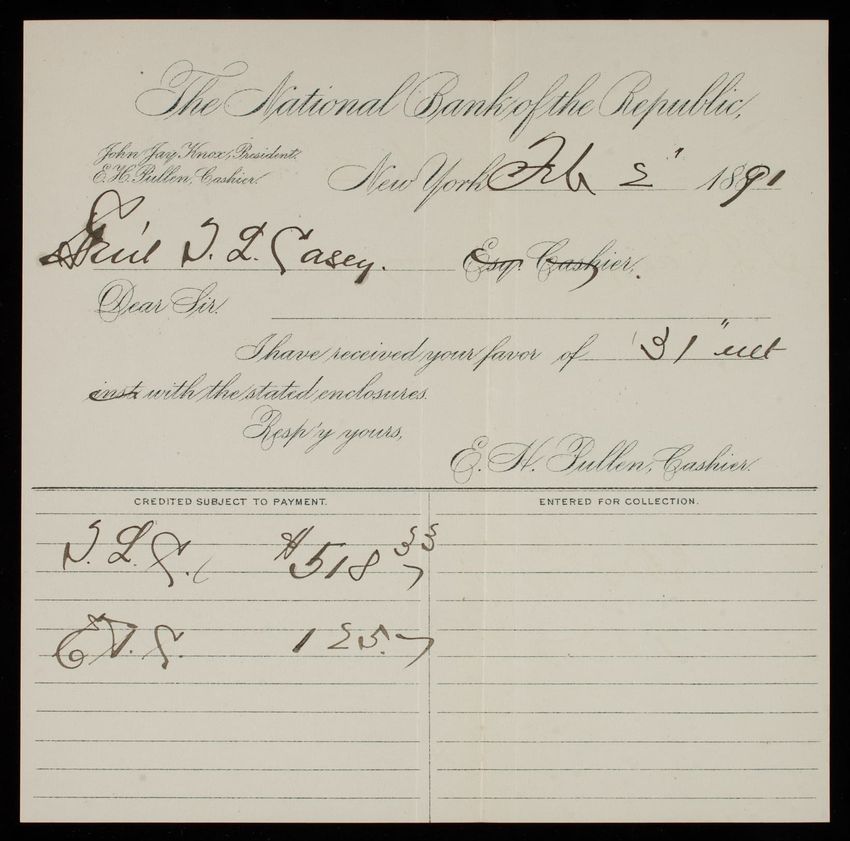 The National Bank of the Republic,
John Jay Knox, President.
E. H. Pullen, Cashier.
New York Feb 2" 1891
Gen'l T. L. Casey. Esq. Cashier.
Dear Sir.
I have received your favor of 31" ult
inst. with the stated enclosures.
Resp'y yours,
E. H. Pullen, Cashier.
CREDITED SUBJECT TO PAYMENT.
ENTERED FOR COLLECTION.
T. L. C. $518 33
E. T. C. 125.